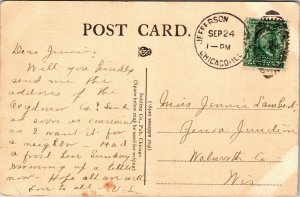 POST CARD.
JEFFERSON
SEP 24
1-PM
CHICAGO, ILL.
Dear Jennie:
Will you kindly
send me the
address of the
Co? Send
as soon as convenient
as I want it for
a neighbor. Had
a frost here Sunday.
warming up a little
now. Hope all are well
Love to all.
Miss Jennie Lambert
Genoa Junction
Walworth Co.
Wis.